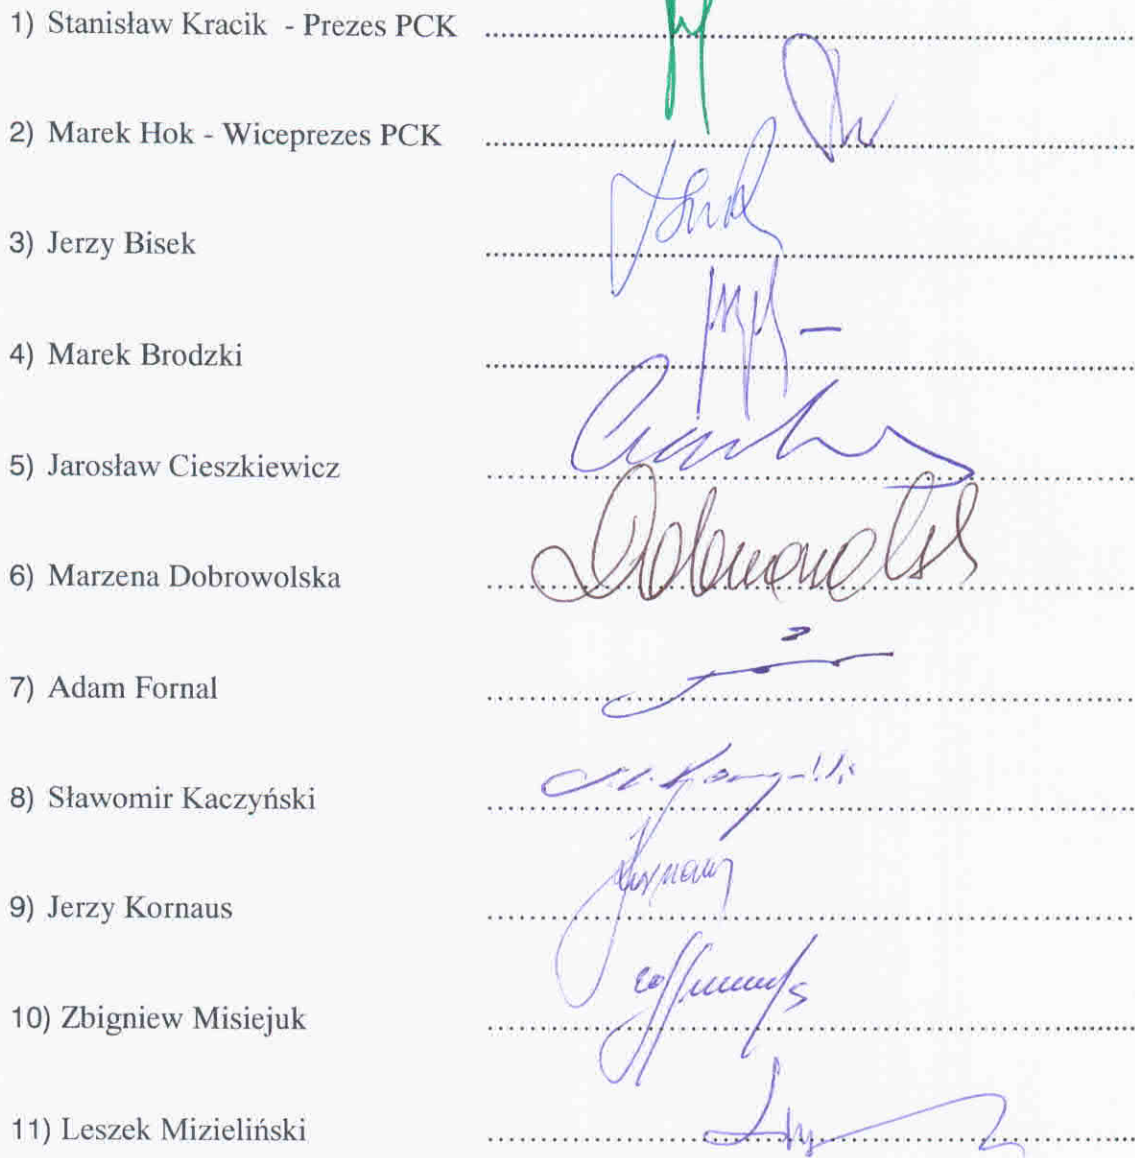 1) Stanisław Kracik - Prezes PCK ..............................
2) Marek Hok - Wiceprezes PCK ..............................
3) Jerzy Bisek ..............................
4) Marek Brodzki ..............................
5) Jarosław Cieszkiewicz ..............................
6) Marzena Dobrowolska ..............................
7) Adam Fornal ..............................
8) Sławomir Kaczyński ..............................
9) Jerzy Kornaus ..............................
10) Zbigniew Misiejuk ..............................
11) Leszek Mizieliński ..............................